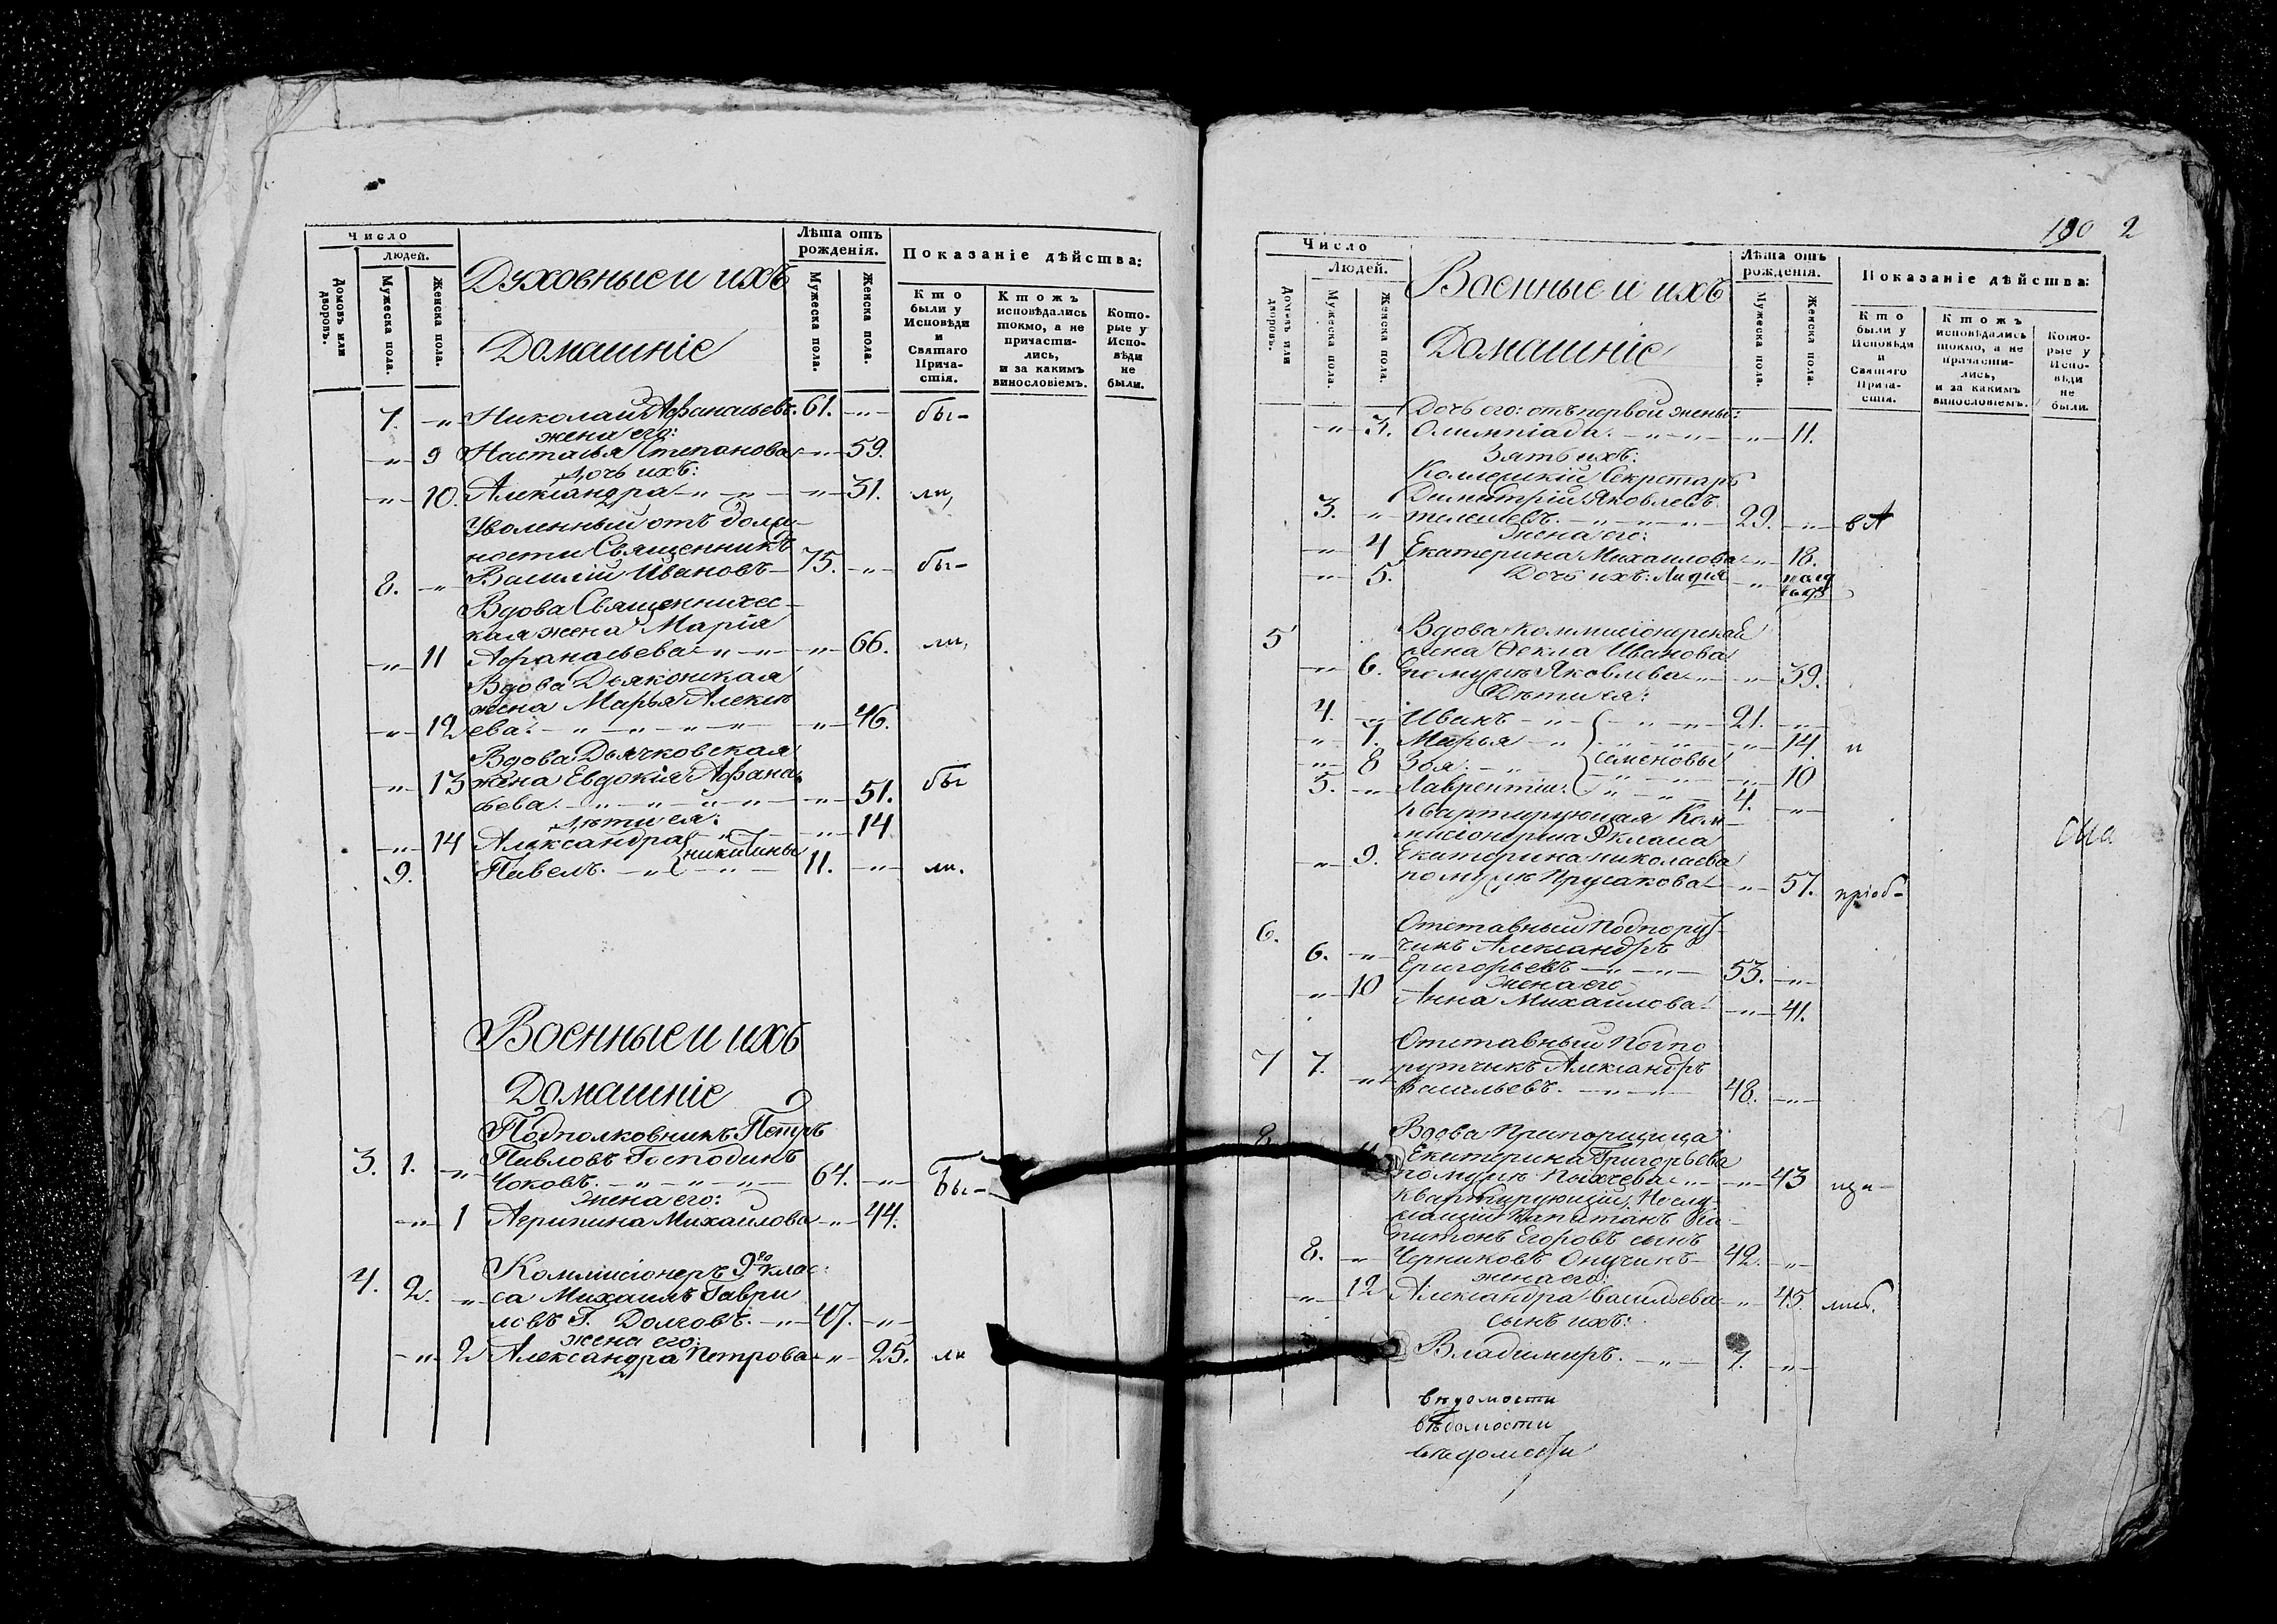 Число
Людей.
Домовъ или дворовъ.
Мужеска пола.
Женска пола.
Духовные и ихъ
Домашніе
Лѣта отъ рожденія.
Мужеска пола.
Женска пола.
Показаніе дѣйства:
Кто были у Исповѣди и Святаго Прича-стія.
Ктожъ исповѣдались токмо, а не причасти-лись, и за какимъ винословіемъ.
Кото-рые у Испо-вѣди не были.
7. -„- Николай Аѳанасьевъ. 61. -„- бы-
жена его:
-„- 9 Настасья Степанова -„- 59.
Дочь ихъ:
-„- 10. Александра -„- -„- -„- 31. ли,
Уволенный отъ долж-
ности Священникъ
8. -„- Василій Ивановъ 75. -„- бы-
Вдова Священничес-
кая жена Марія
-„- 11 Аѳанасьева -„- -„- -„- 66. ли,
Вдова Дьяконская
жена Марья Алексѣ
-„- 12 ева. -„- -„- -„- -„- 46.
Вдова Дьячковская
-„- 13 жена Евдокія Аѳана
сьева. -„- -„- -„- -„- 51. бы
Дѣти ея:
-„- 14 Александра -„- -„- 14
Никитины
9. Павелъ. -„- -„- 11. -„- ли.
Военные и ихъ
Домашніе
Подполковникъ Петръ
3. 1. -„- Павловъ Господинъ
Чоковъ. -„- -„- -„- 64. -„- Бы-
Жена его:
-„- 1 Агрипина Михайлова -„- 44.
Коммисіонеръ 9го клас:
4. 2. -„- са Михаилъ Гаври
ловъ Г. Долговъ. -„- 47. -„-
жена его:
-„- 2 Александра Петрова -„- 25. ли
190 2
Число
Людей.
Домовъ или дворовъ.
Мужеска пола.
Женска пола.
Военные и ихъ
Домашніе
Лѣта отъ рожденія.
Мужеска пола.
Женска пола.
Показаніе дѣйства:
Кто были у Исповѣди и Святаго Прича-стія.
Ктожъ исповѣдались токмо, а не причасти-лись, и за какимъ винословіемъ.
Кото-рые у Испо-вѣди не были.
Дочь его: отъ первой жены:
-„- 3. Олимпіада. -„- -„- -„- 11.
Зять ихъ:
Коллежскій Секретарь
Димитрій Яковлевъ
3. -„- Телешевъ. -„- -„- -„- 29. -„- вА
Жена его:
-„- 4 Екатерина Михайлова -„- 18.
-„- 5. Дочь ихъ: Лидія -„-
5 Вдова Коммисіонерская
жена Ѳекла Иванова
-„- 6. по мужѣ Яковлева -„- -„- 39.
Дѣти ея:
4. -„- Иванъ -„- -„- -„- 21. -„-
-„- 7. Марья -„- -„- -„- -„- 14. и
Семеновы
-„- 8 Зоя. -„- -„- 10
5. -„- Лаврентій. -„- -„- 4. -„-
Квартирующая Ком-
мисіонерша 9 класса
-„- 9. Екатерина Николаева
по мужѣ -„- 57. пріоб-
6. Отставный Подпору-
6. -„- чикъ Александръ
Григорьевъ -„- -„- 53. -„-
Жена его
-„- 10 Анна Михайлова -„- 41.
Отставный Подпо
7 7. -„- ручикъ Александръ
Васильевъ. -„- -„- 48. -„-
8 Вдова Прапорщица
Екатерина Григорьева
по мужѣ -„- -„- 43
Квартирующій, Неслу-
жащій Капитанъ Ка-
питонъ Егоровъ сынъ
8. -„- Черниковъ Онучинъ 42. -„-
жена его:
-„- 12 Александра Васильева -„- 45.
Сынъ ихъ:
Владимиръ. -„- 7. -„-
вѣдомости
вѣдомости
вѣдомости